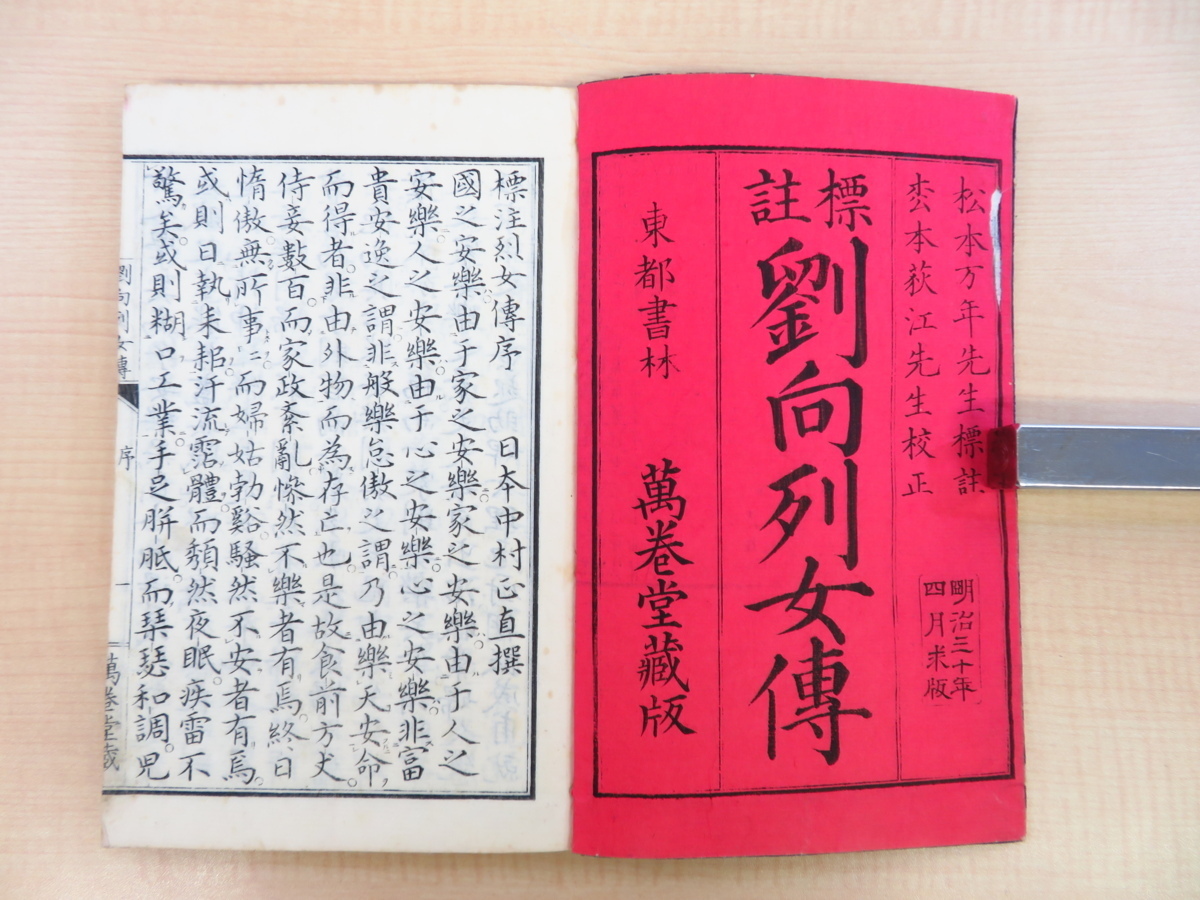 松本万年先生標註
枩本荻江先生校正
明治三十年
四月求版
標註
劉向列女傳
東都書林
萬卷堂藏版
標注烈女傳序 日本中村正直撰
國之安樂。由于家之安樂。家之安樂。由于人之
安樂。人之安樂。由于心之安樂。心之安樂。非富
貴安逸之謂。非般樂怠傲之謂。乃由樂天安命。
而得者。非由外物而為存亡也。是故食前方丈。
侍妾數百。而家政紊亂。慘然不樂者有焉。終日
惰傲。無所事事。而婦姑勃谿。騷然不安者有焉。
或則日執耒耜。汗流霑體。而頽然夜眠。疾雷不
驚矣。或則糊口工業。手足胼胝。而琴瑟和調。兒
劉向列女傳 序 一 萬卷堂藏